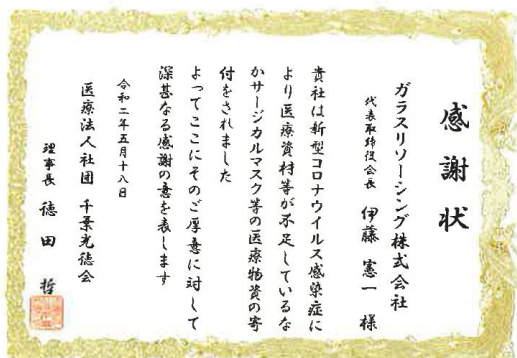 感謝状
ガラスリソーシング株式会社
代表取締役会長 伊藤憲一様
貴社は新型コロナウイルス感染症に
より医療資材等が不足しているな
かサージカルマスク等の医療物資の寄
付をされました
よってここにそのご厚意に対して
深甚なる感謝の意を表します
令和二年五月十八日
医療法人社団 千葉光徳会
理事長 徳田 哲